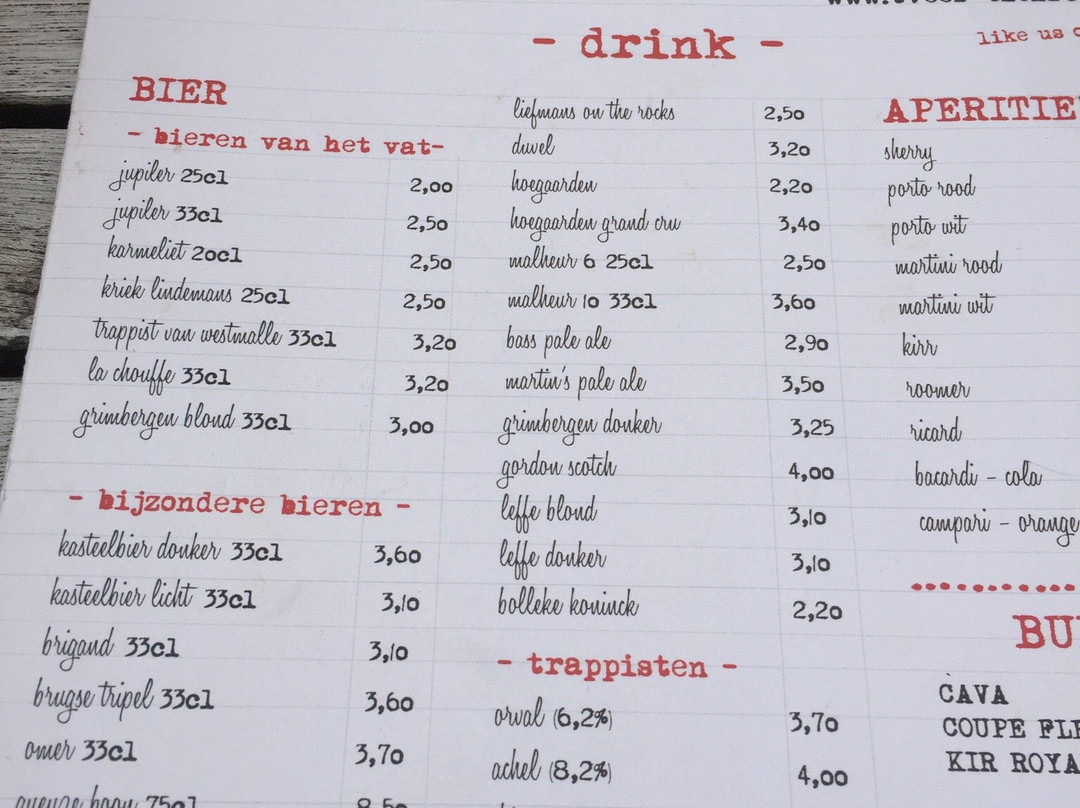 - drink -
like us
BIER
- bieren van het vat-
jupiler 25cl 2,00
jupiler 33cl 2,50
karmeliet 20cl 2,50
kriek lindemans 25cl 2,50
trappist van westmalle 33cl 3,20
la chouffe 33cl 3,20
grimbergen blond 33cl 3,00
- bijzondere bieren -
kasteelbier donker 33cl 3,60
kasteelbier licht 33cl 3,10
brigand 33cl 3,10
brugse tripel 33cl 3,60
omer 33cl 3,70
75cl 8,50
liefmans on the rocks 2,50
duvel 3,20
hoegaarden 2,20
hoegaarden grand cru 3,40
malheur 6 25cl 2,50
malheur 10 33cl 3,60
bass pale ale 2,90
martin's pale ale 3,50
grimbergen donker 3,25
gordon scotch 4,00
leffe blond 3,10
leffe donker 3,10
bolleke koninck 2,20
- trappisten -
orval (6,2%) 3,70
achel (8,2%) 4,00
APERITIE
sherry
porto rood
porto wit
martini rood
martini wit
kirr
roomer
ricard
bacardi - cola
campari - orange
BU
CAVA
COUPE FLE
KIR ROYA